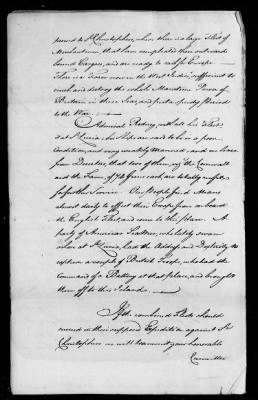 proceed to St. Christophers, where there is a large Fleet of
Merchantmen, that have compleated their outwards
bound Cargoes, and are ready to sail for Europe —
There is a Force now in the West Indies, sufficient to
crush and destroy the whole Maritime Power of
Britain in these Seas, and put a speedy Period
to the War. —
Admiral Rodney, with all his Fleet,
is at St. Lucia, his Ships are said to be in a poor
Condition, and very weakly Manned — and we learn
from Deserters, that two of them, viz the Cornwall
and the Fame, of 74 Guns each, are totally unfit
for further Service. Our People find Means
almost daily to effect their Escape from on board
the English Fleet, and come to this place. A
party of American Seamen, who lately swam
ashore at St. Lucia, had the Address and Dexterity to
capture a couple of British Troops, who had the
Command of a Battery at that place, and brought
them off to this Island. —
If the combined Fleets should
succeed in their supposed Expedition against St.
Christophers we will transmit your honorable
Committee